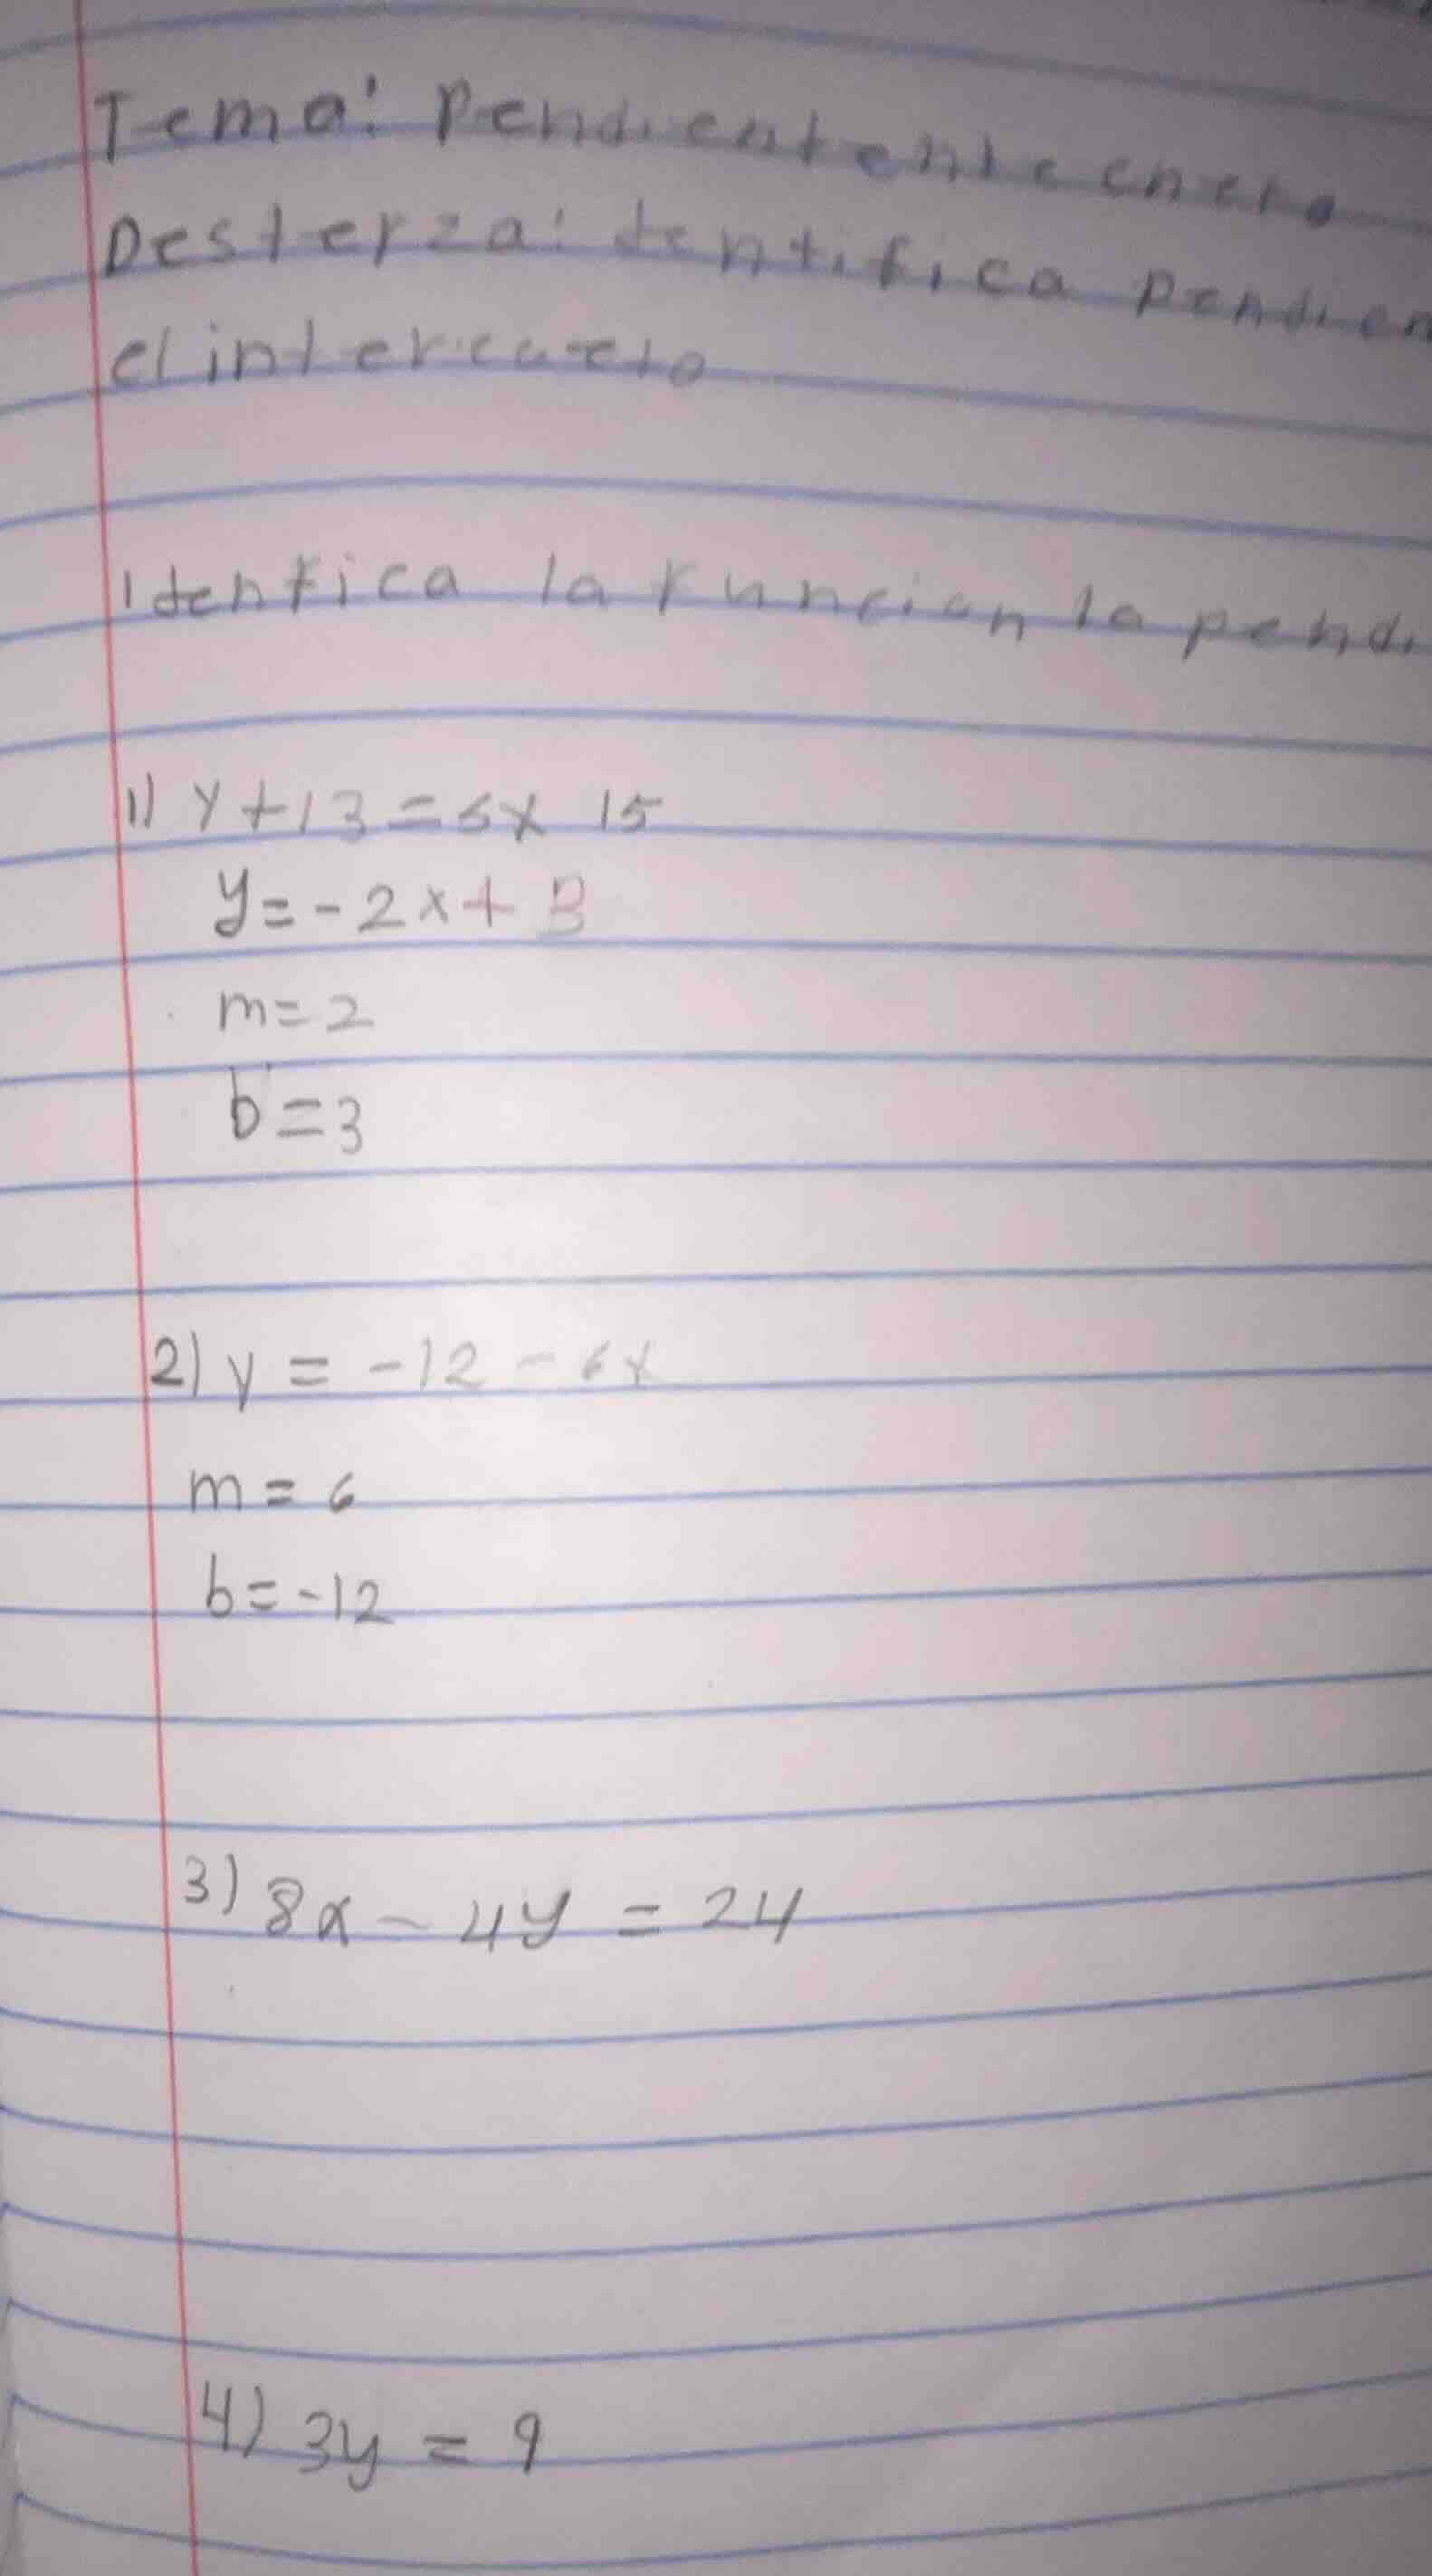 Tema: Pendientente enero
Desterza: identifica pendien
el intercecto
Identfica la funcion la pendi
1) y+13=5x 15
y=-2x+3
m=2
b=3
2) y = -12 - 6x
m = 6
b=-12
3) 8x - 4y = 24
4) 3y = 9